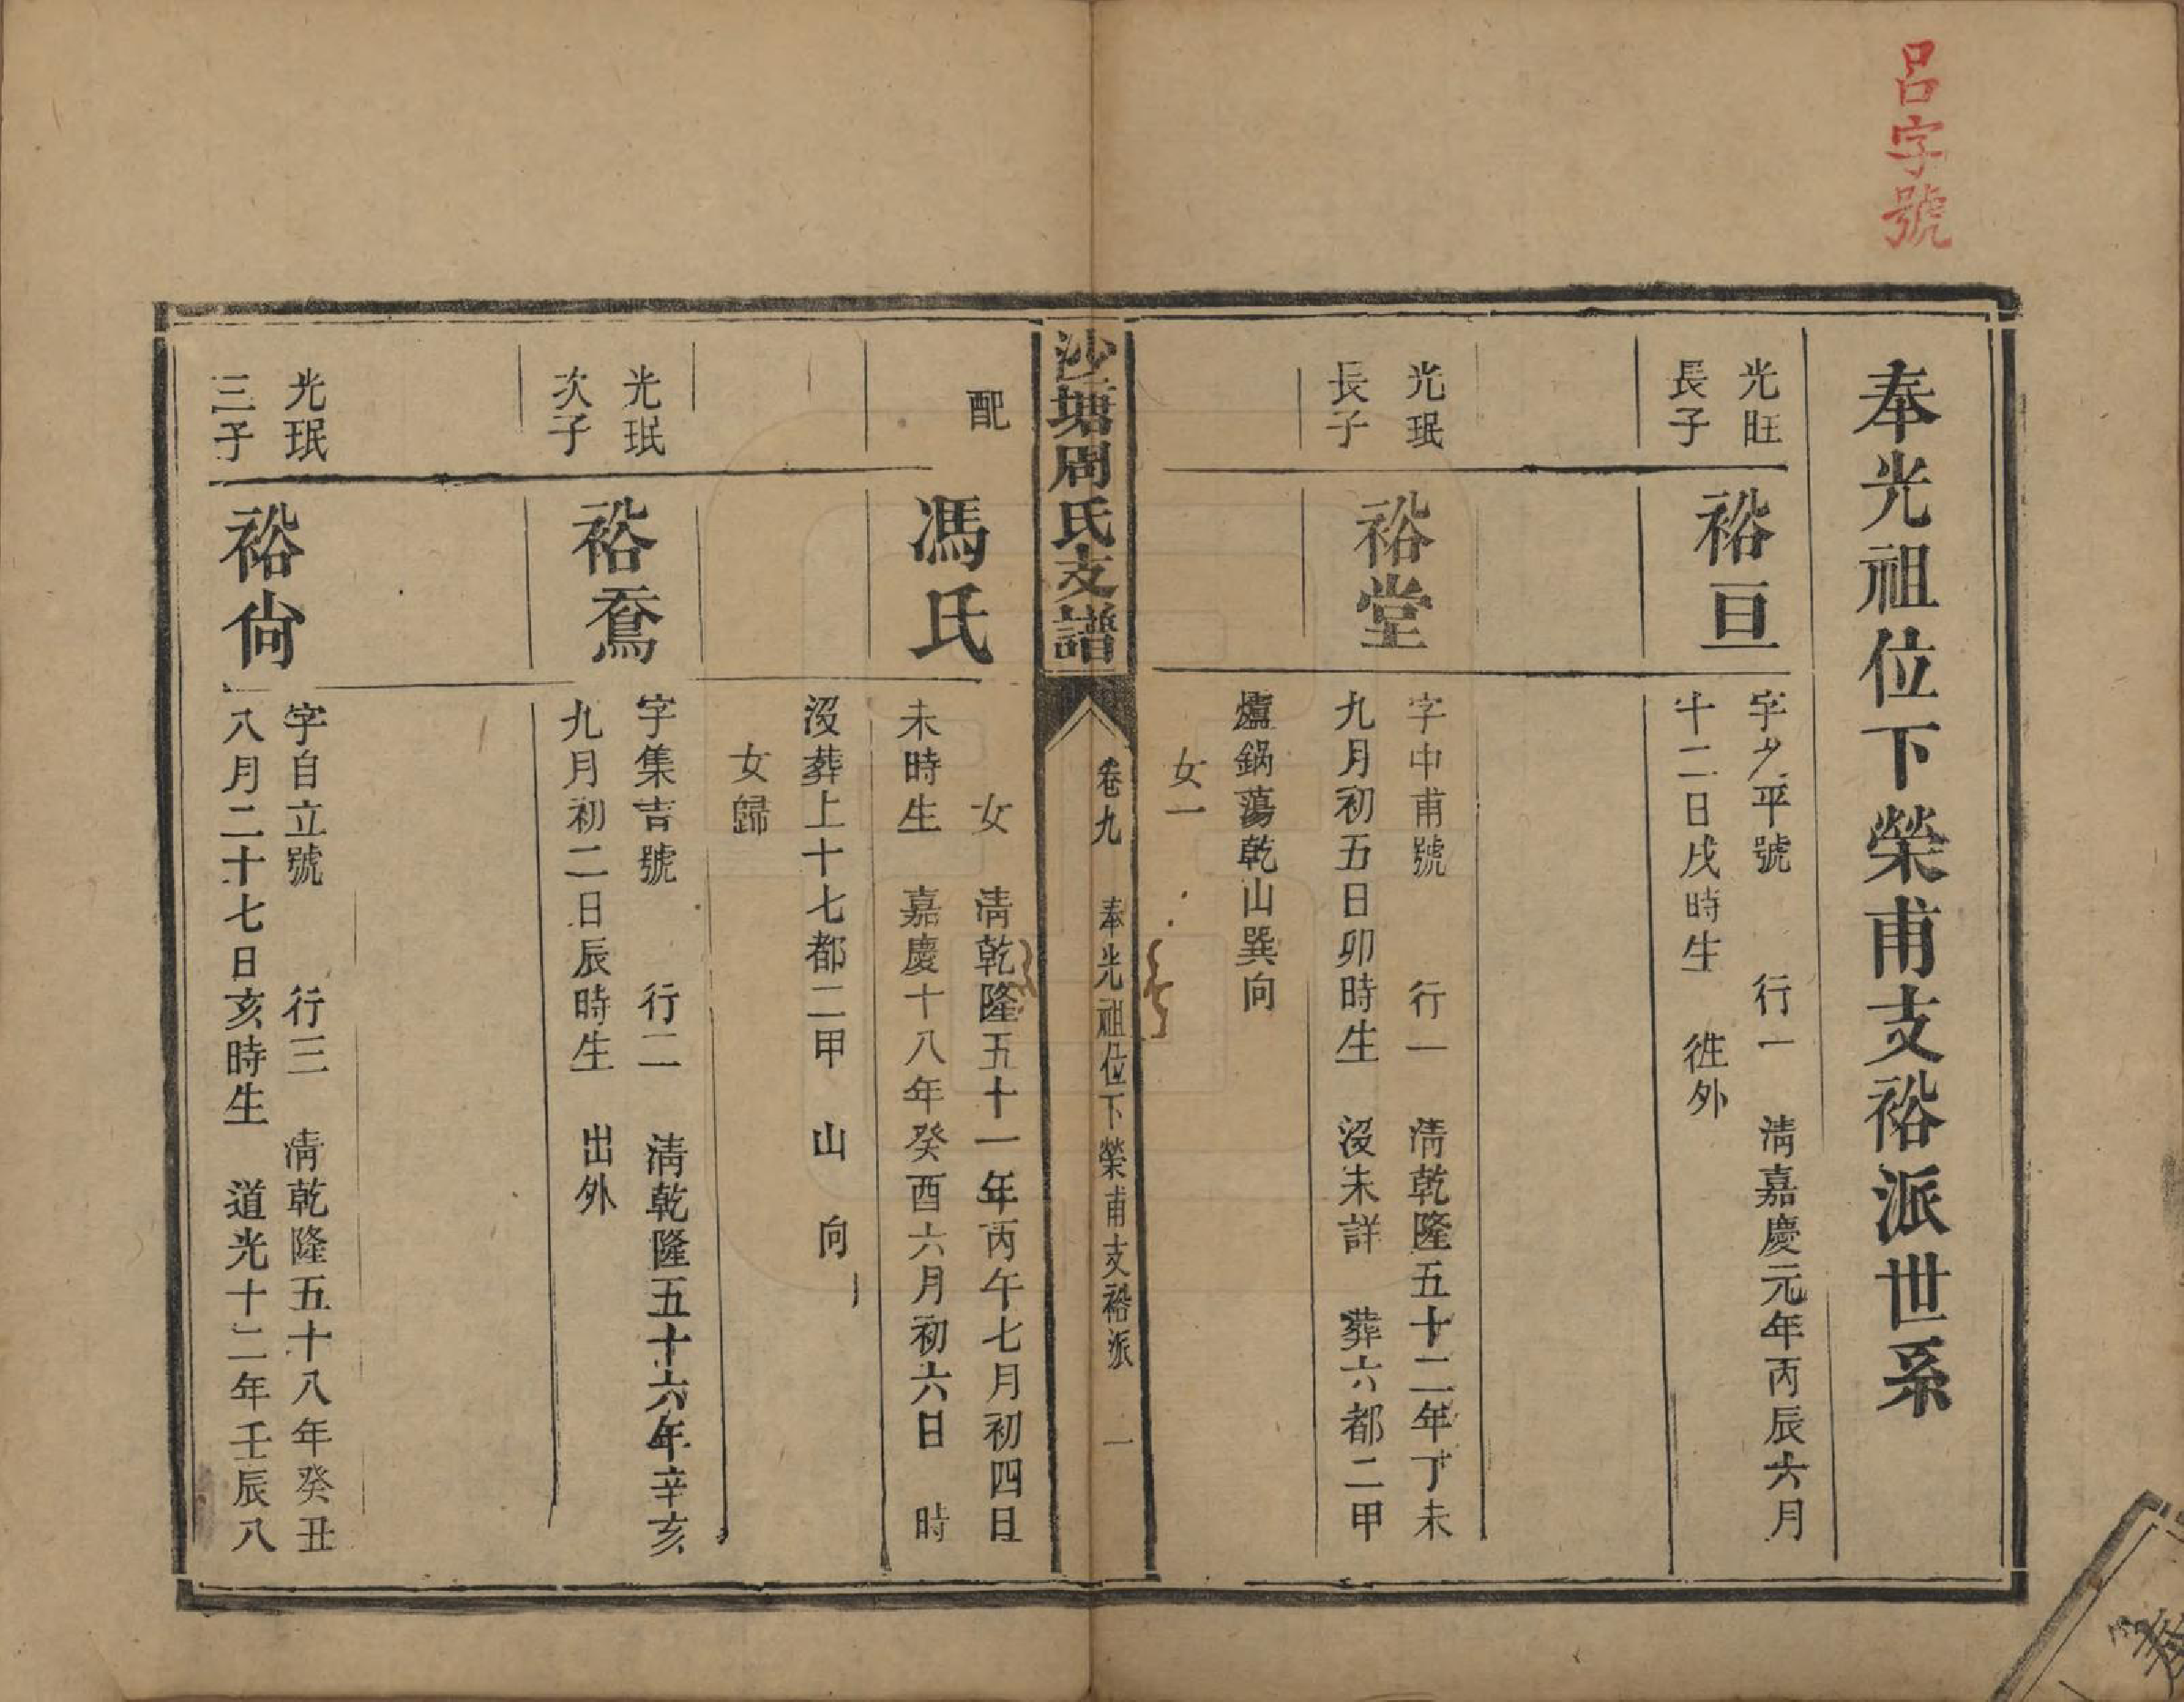 呂字號
奉光祖位下榮甫支裕派世系
光旺
長子
裕亘
字夕平號　行一　淸嘉慶元年丙辰六月
十二日戌時生　徃外
光珉
長子
裕堂
字中甫號　行一　淸乾隆五十二年丁未
九月初五日卯時生　沒未詳　葬六都二甲
爐鍋蕩乾山巽向
女一
沙塘周氏支譜
卷九　奉光祖位下榮甫支裕派　一
配
馮氏
女　淸乾隆五十一年丙午七月初四日
未時生　嘉慶十八年癸酉六月初六日　時
沒葬上十七都二甲　山　向
女歸
光珉
次子
裕鴌
字集吉號　行二　淸乾隆五十六年辛亥
九月初二日辰時生　出外
光珉
三子
裕尙
字自立號　行三　淸乾隆五十八年癸丑
八月二十七日亥時生　道光十二年壬辰八